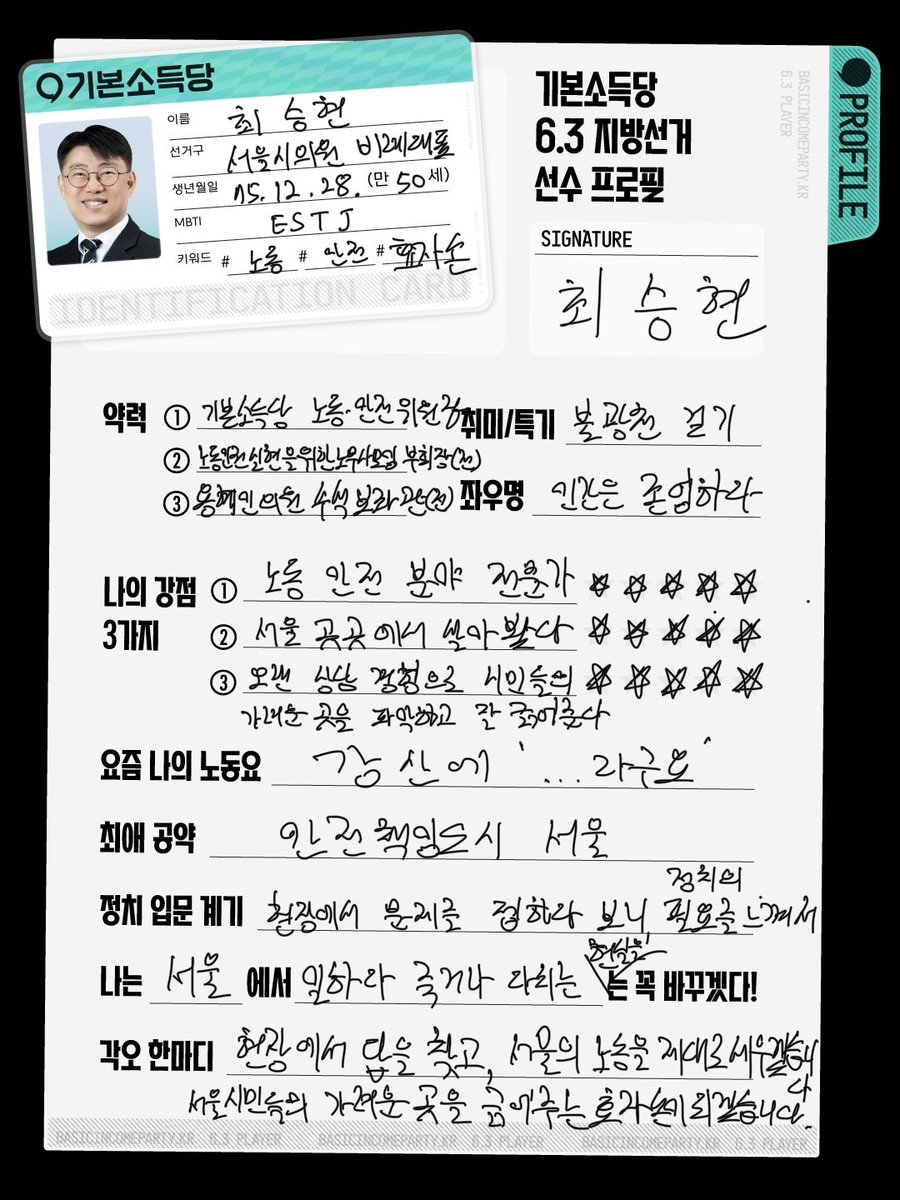 기본소득당
이름 최승현
선거구 서울시의원 비례대표
생년월일 75.12.28. (만 50세)
MBTI ESTJ
키워드 # 노동 # 안전 # 효자손
IDENTIFICATION CARD
기본소득당
6.3 지방선거
선수 프로필
SIGNATURE
최승현
PROFILE
BASICINCOMEPARTY.KR
6.3 PLAYER
약력 ① 기본소득당 노동·안전위원장
② 노동안전실현을위한노무사모임 부회장(전)
③ 용혜인의원 수석보좌관(전)
취미/특기 불광천 걷기
좌우명 인간은 존엄하다
나의 강점
3가지
① 노동 안전 분야 전문가
② 서울 곳곳에서 살아봤다
③ 오랜 상담 경험으로 시민들의
가려운 곳을 파악하고 잘 긁어준다
요즘 나의 노동요 강산에 '...라구요'
최애 공약 안전책임도시 서울
정치 입문 계기 현장에서 문제를 접하다 보니, 정치의 필요를 느껴서
나는 서울 에서 일하다 죽거나 다치는 현실을 는 꼭 바꾸겠다!
각오 한마디 현장에서 답을 찾고, 서울의 노동을 제대로 세우겠습니다
서울시민들의 가려운 곳을 긁어주는 효자손이 되겠습니다.
BASICINCOMEPARTY.KR 6.3 PLAYER BASICINCOMEPARTY.KR 6.3 PLAYER BASICINCOMEPARTY.KR 6.3 PLAYER